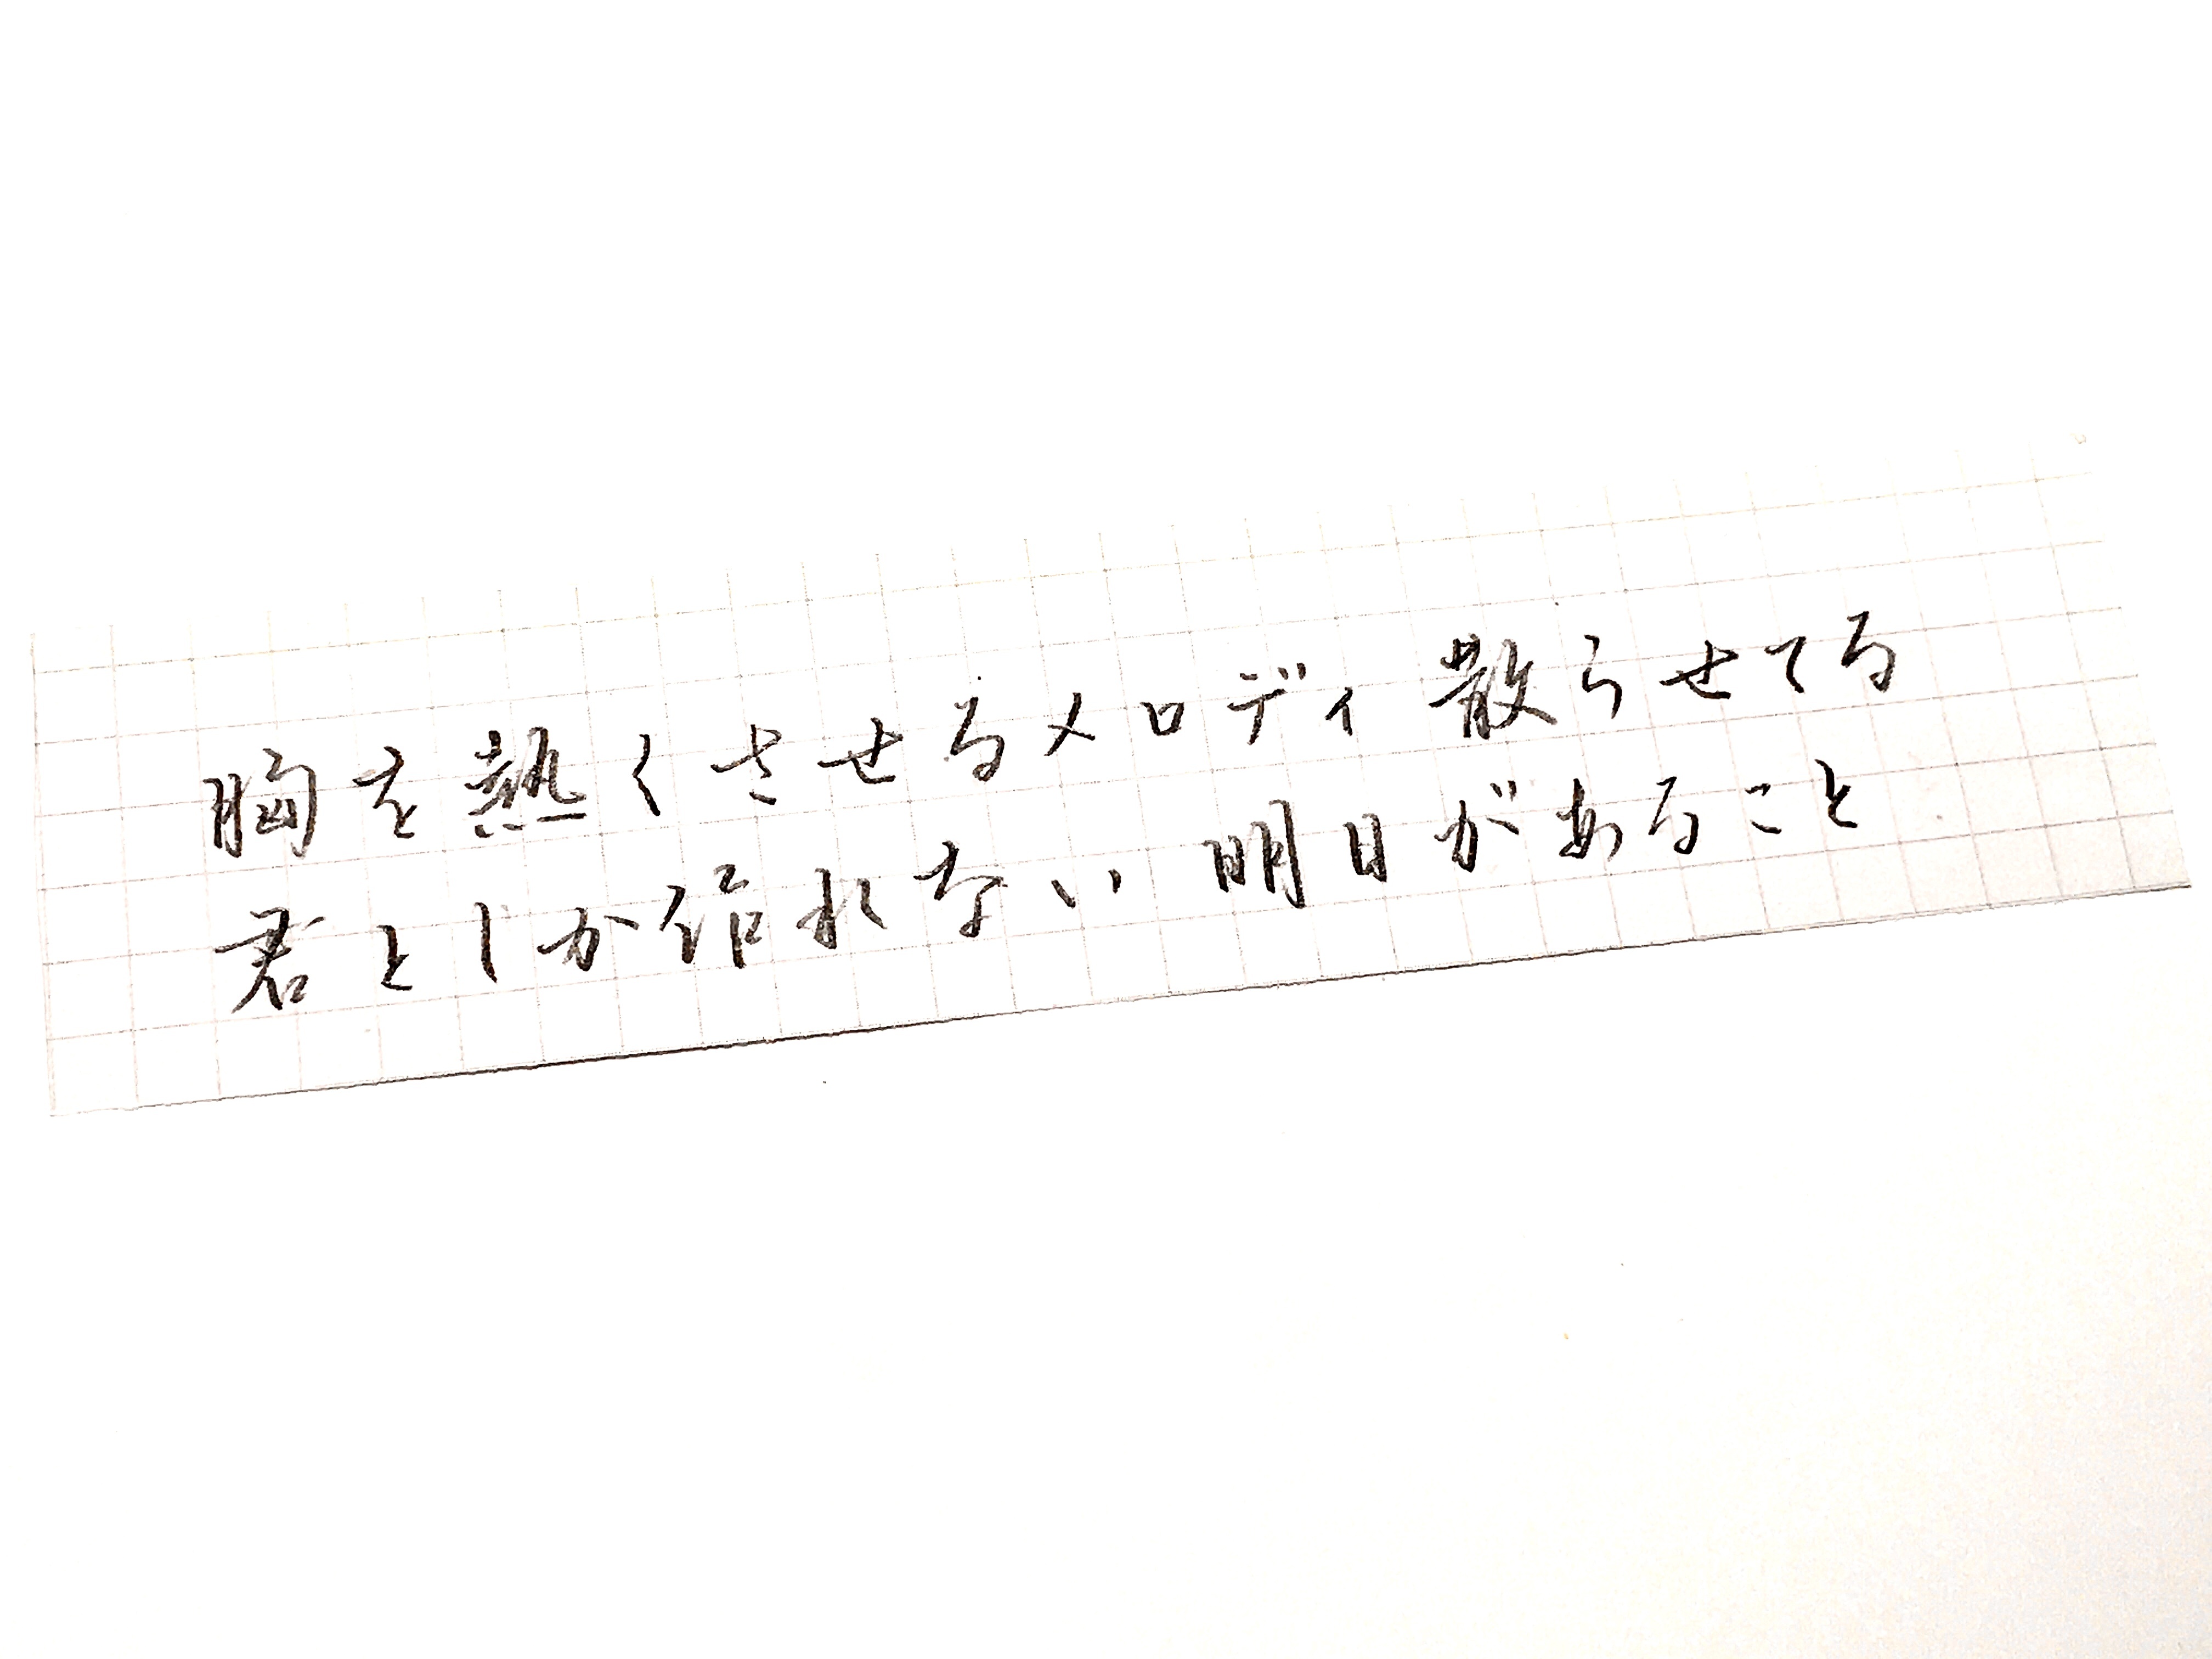 胸を熱くさせるメロディ 散らせてる
君としか作れない 明日があること